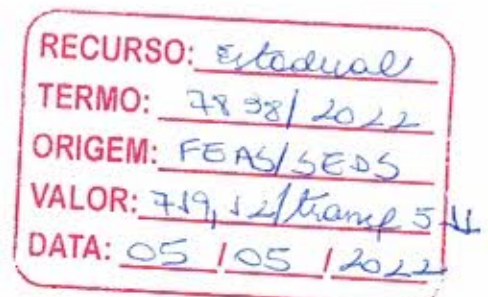 RECURSO: Estadual
TERMO: 7898/2022
ORIGEM: FEAS/SEDS
VALOR: 719,12/
DATA: 05/05/2022